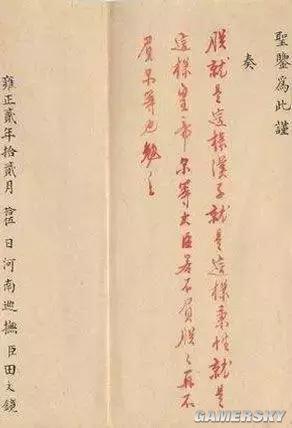 聖鑒為此謹
奏
朕就是這樣漢子就是這樣秉性就是
這樣皇帝尔等大臣若不負朕々再不
負尔等也勉之
雍正貳年拾貳月拾伍日河南巡撫臣田文鏡
GAMERSKY